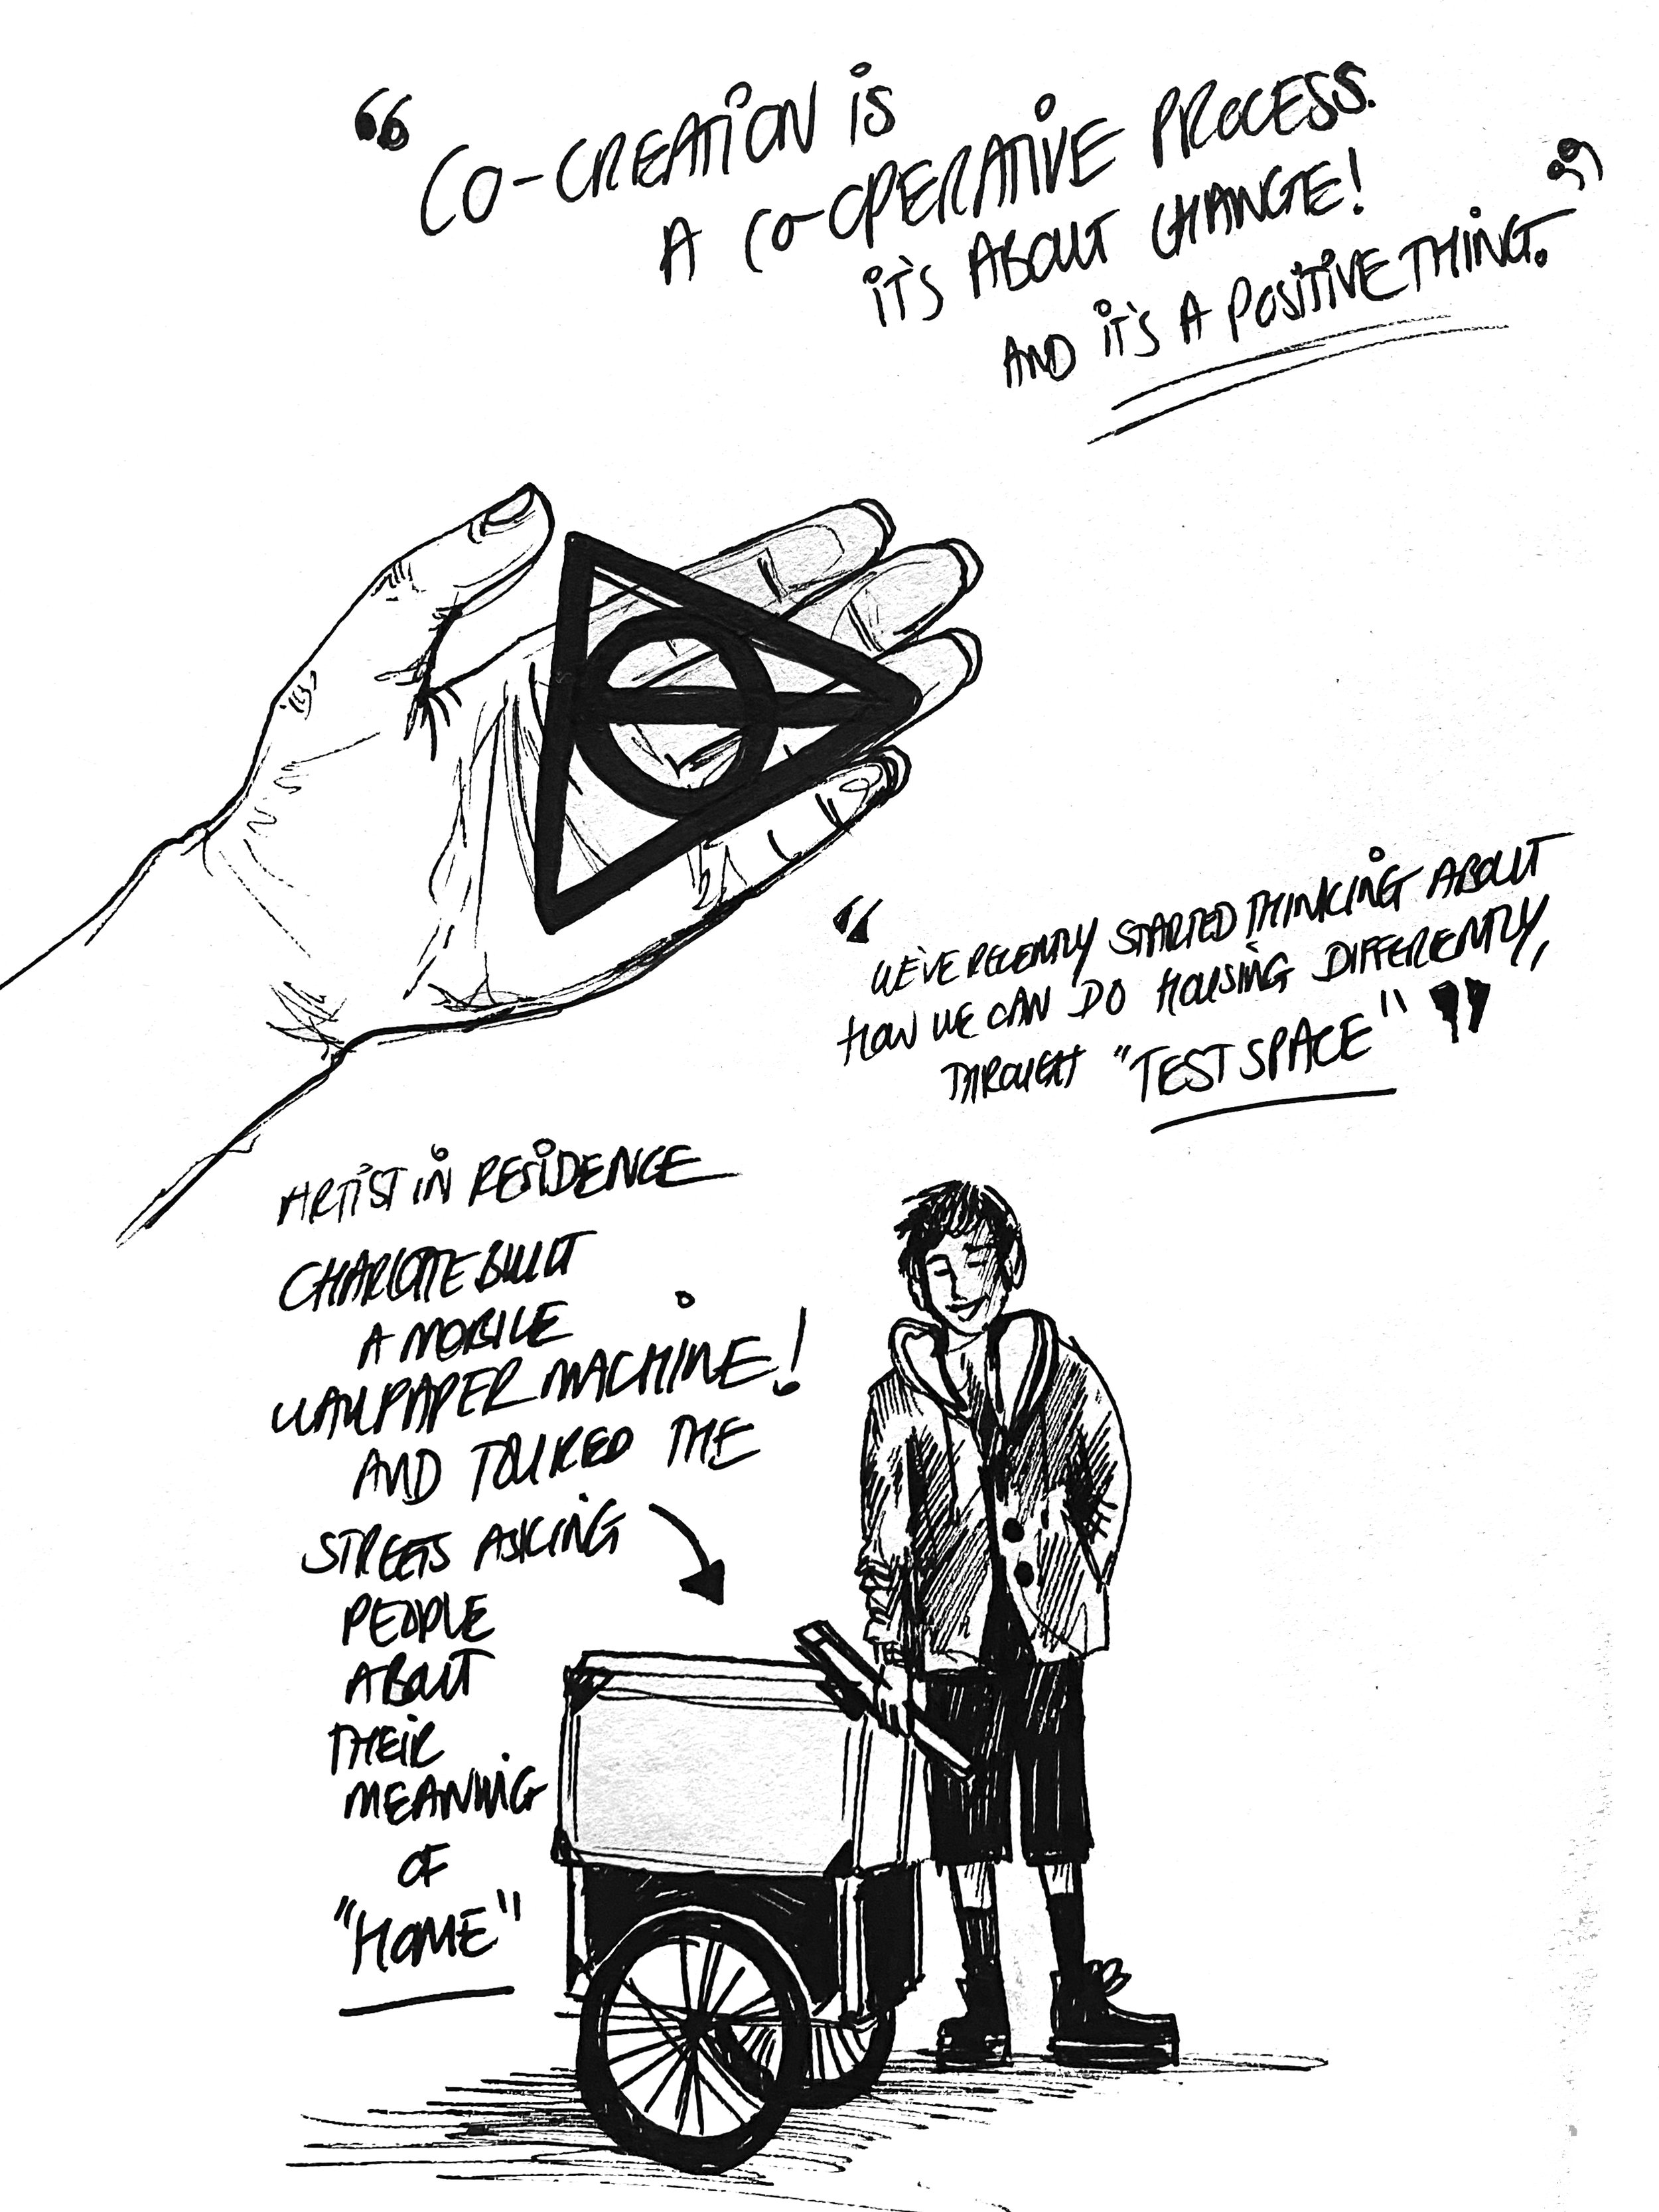 “ CO-CREATION IS
A CO-OPERATIVE PROCESS.
IT'S ABOUT CHANGE!
AND IT'S A POSITIVE THING. ”
“ WE'VE RECENTLY STARTED THINKING ABOUT
HOW WE CAN DO HOUSING DIFFERENTLY,
THROUGH "TEST SPACE" ”
ARTIST IN RESIDENCE
CHARLOTTE BUILT
A MOBILE
WALLPAPER MACHINE!
AND TOURED THE
STREETS ASKING
PEOPLE
ABOUT
THEIR
MEANING
OF
"HOME"